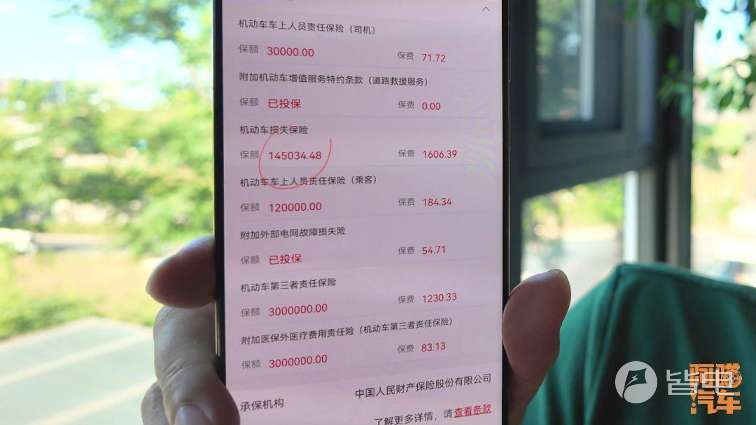 机动车车上人员责任保险（司机）
保额 30000.00 保费 71.72
附加机动车增值服务特约条款（道路救援服务）
保额 已投保 保费 0.00
机动车损失保险
保额 145034.48 保费 1606.39
机动车车上人员责任保险（乘客）
保额 120000.00 保费 184.34
附加外部电网故障损失险
保额 已投保 保费 54.71
机动车第三者责任保险
保额 3000000.00 保费 1230.33
附加医保外医疗费用责任险（机动车第三者责任保险）
保额 3000000.00 保费 83.13
承保机构 中国人民财产保险股份有限公司
了解更多详情，请查看条款
皆电
汽车